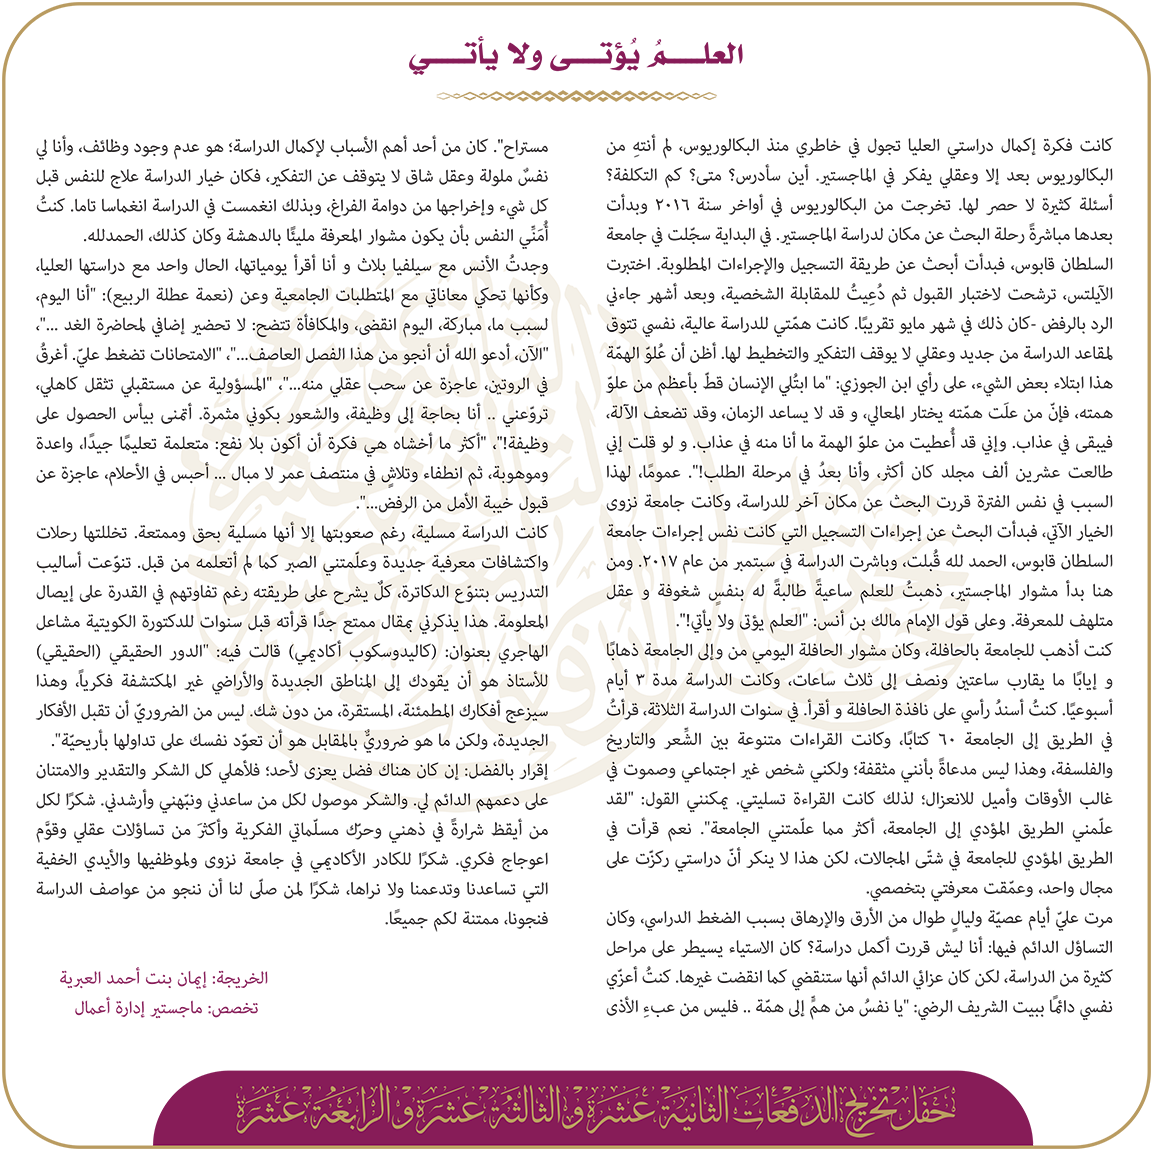 العلمُ يُؤتى ولا يأتي
كانت فكرة إكمال دراستي العليا تجول في خاطري منذ البكالوريوس، لم أنتهِ من
البكالوريوس بعد إلا وعقلي يفكر في الماجستير. أين سأدرس؟ متى؟ كم التكلفة؟
أسئلة كثيرة لا حصر لها. تخرجت من البكالوريوس في أواخر سنة ٢٠١٦ وبدأت
بعدها مباشرةً رحلة البحث عن مكان لدراسة الماجستير. في البداية سجّلت في جامعة
السلطان قابوس، فبدأت أبحث عن طريقة التسجيل والإجراءات المطلوبة. اختبرت
الآيلتس، ترشحت لاختبار القبول ثم دُعِيتُ للمقابلة الشخصية، وبعد أشهر جاءني
الرد بالرفض -كان ذلك في شهر مايو تقريبًا. كانت همّتي للدراسة عالية، نفسي تتوق
لمقاعد الدراسة من جديد وعقلي لا يوقف التفكير والتخطيط لها. أظن أن عُلوّ الهمّة
هذا ابتلاء بعض الشيء، على رأي ابن الجوزي: "ما ابتُلي الإنسان قطّ بأعظم من علوّ
همته، فإنّ من علَت همّته يختار المعالي، و قد لا يساعد الزمان، وقد تضعف الآلة،
فيبقى في عذاب. وإني قد أُعطيت من علوّ الهمة ما أنا منه في عذاب. و لو قلت إني
طالعت عشرين ألف مجلد كان أكثر، وأنا بعدُ في مرحلة الطلب!". عمومًا، لهذا
السبب في نفس الفترة قررت البحث عن مكان آخر للدراسة، وكانت جامعة نزوى
الخيار الآتي، فبدأت البحث عن إجراءات التسجيل التي كانت نفس إجراءات جامعة
السلطان قابوس، الحمد لله قُبلت، وباشرت الدراسة في سبتمبر من عام ٢٠١٧. ومن
هنا بدأ مشوار الماجستير، ذهبتُ للعلم ساعيةً طالبةً له بنفسٍ شغوفة و عقل
متلهف للمعرفة. وعلى قول الإمام مالك بن أنس: "العلم يؤتى ولا يأتي!".
كنت أذهب للجامعة بالحافلة، وكان مشوار الحافلة اليومي من وإلى الجامعة ذهابًا
و إيابًا ما يقارب ساعتين ونصف إلى ثلاث ساعات، وكانت الدراسة مدة ٣ أيام
أسبوعيًا. كنتُ أسندُ رأسي على نافذة الحافلة و أقرأ. في سنوات الدراسة الثلاثة، قرأتُ
في الطريق إلى الجامعة ٦٠ كتابًا، وكانت القراءات متنوعة بين الشِّعر والتاريخ
والفلسفة، وهذا ليس مدعاةً بأنني مثقفة؛ ولكني شخص غير اجتماعي وصموت في
غالب الأوقات وأميل للانعزال؛ لذلك كانت القراءة تسليتي. يمكنني القول: "لقد
علّمني الطريق المؤدي إلى الجامعة، أكثر مما علّمتني الجامعة". نعم قرأت في
الطريق المؤدي للجامعة في شتّى المجالات، لكن هذا لا ينكر أنّ دراستي ركزّت على
مجال واحد، وعمّقت معرفتي بتخصصي.
مرت عليّ أيام عصيّة وليالٍ طوال من الأرق والإرهاق بسبب الضغط الدراسي، وكان
التساؤل الدائم فيها: أنا ليش قررت أكمل دراسة؟ كان الاستياء يسيطر على مراحل
كثيرة من الدراسة، لكن كان عزائي الدائم أنها ستنقضي كما انقضت غيرها. كنتُ أعزّي
نفسي دائمًا ببيت الشريف الرضي: "يا نفسُ من همٍّ إلى همّة .. فليس من عبءِ الأذى
مستراح". كان من أحد أهم الأسباب لإكمال الدراسة؛ هو عدم وجود وظائف، وأنا لي
نفسٌ ملولة وعقل شاق لا يتوقف عن التفكير، فكان خيار الدراسة علاج للنفس قبل
كل شيء وإخراجها من دوامة الفراغ، وبذلك انغمست في الدراسة انغماسا تاما. كنتُ
أُمَنِّي النفس بأن يكون مشوار المعرفة مليئًا بالدهشة وكان كذلك، الحمدلله.
وجدتُ الأنس مع سيلفيا بلاث و أنا أقرأ يومياتها، الحال واحد مع دراستها العليا،
وكأنها تحكي معاناتي مع المتطلبات الجامعية وعن (نعمة عطلة الربيع): "أنا اليوم،
لسبب ما، مباركة، اليوم انقضى، والمكافأة تتضح: لا تحضير إضافي لمحاضرة الغد ..."،
"الآن، أدعو الله أن أنجو من هذا الفصل العاصف..."، "الامتحانات تضغط عليّ. أغرقُ
في الروتين، عاجزة عن سحب عقلي منه..."، "المسؤولية عن مستقبلي تثقل كاهلي،
تروّعني .. أنا بحاجة إلى وظيفة، والشعور بكوني مثمرة. أتمنى بيأس الحصول على
وظيفة!"، "أكثر ما أخشاه هي فكرة أن أكون بلا نفع: متعلمة تعليمًا جيدًا، واعدة
وموهوبة، ثم انطفاء وتلاشٍ في منتصف عمر لا مبال ... أحبس في الأحلام، عاجزة عن
قبول خيبة الأمل من الرفض...".
كانت الدراسة مسلية، رغم صعوبتها إلا أنها مسلية بحق وممتعة. تخللتها رحلات
واكتشافات معرفية جديدة وعلّمتني الصبر كما لم أتعلمه من قبل. تنوّعت أساليب
التدريس بتنوّع الدكاترة، كلٌ يشرح على طريقته رغم تفاوتهم في القدرة على إيصال
المعلومة. هذا يذكرني بمقال ممتع جدًا قرأته قبل سنوات للدكتورة الكويتية مشاعل
الهاجري بعنوان: (كاليدوسكوب أكاديمي) قالت فيه: "الدور الحقيقي (الحقيقي)
للأستاذ هو أن يقودك إلى المناطق الجديدة والأراضي غير المكتشفة فكرياً، وهذا
سيزعج أفكارك المطمئنة، المستقرة، من دون شك. ليس من الضروريّ أن تقبل الأفكار
الجديدة، ولكن ما هو ضروريٌّ بالمقابل هو أن تعوّد نفسك على تداولها بأريحيّة".
إقرار بالفضل: إن كان هناك فضل يعزى لأحد؛ فلأهلي كل الشكر والتقدير والامتنان
على دعمهم الدائم لي. والشكر موصول لكل من ساعدني ونبّهني وأرشدني. شكرًا لكل
من أيقظ شرارةً في ذهني وحرّك مسلّماتي الفكرية وأكثرَ من تساؤلات عقلي وقوَّم
اعوجاج فكري. شكرًا للكادر الأكاديمي في جامعة نزوى ولموظفيها والأيدي الخفية
التي تساعدنا وتدعمنا ولا نراها، شكرًا لمن صلّى لنا أن ننجو من عواصف الدراسة
فنجونا، ممتنة لكم جميعًا.
الخريجة: إيمان بنت أحمد العبرية
تخصص: ماجستير إدارة أعمال
حفل تخريج الدفعات الثانية عشرة والثالثة عشرة والرابعة عشرة